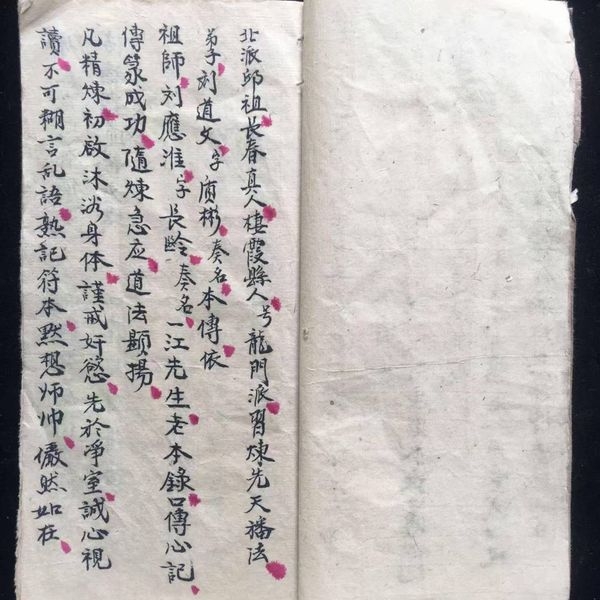 北派邱祖長春真人棲霞縣人号龍門派習煉先天旛法
弟子刘道文字质彬奏名本傳依
祖師刘應淮字長齡奏名一江先生老本錄口傳心記
傳篆成功隨煉急应道法顯揚
凡精煉初啟沐浴身体謹戒奸慾先於净室誠心視
讀不可糊言乱語熟記符本默想师帅儼然如在